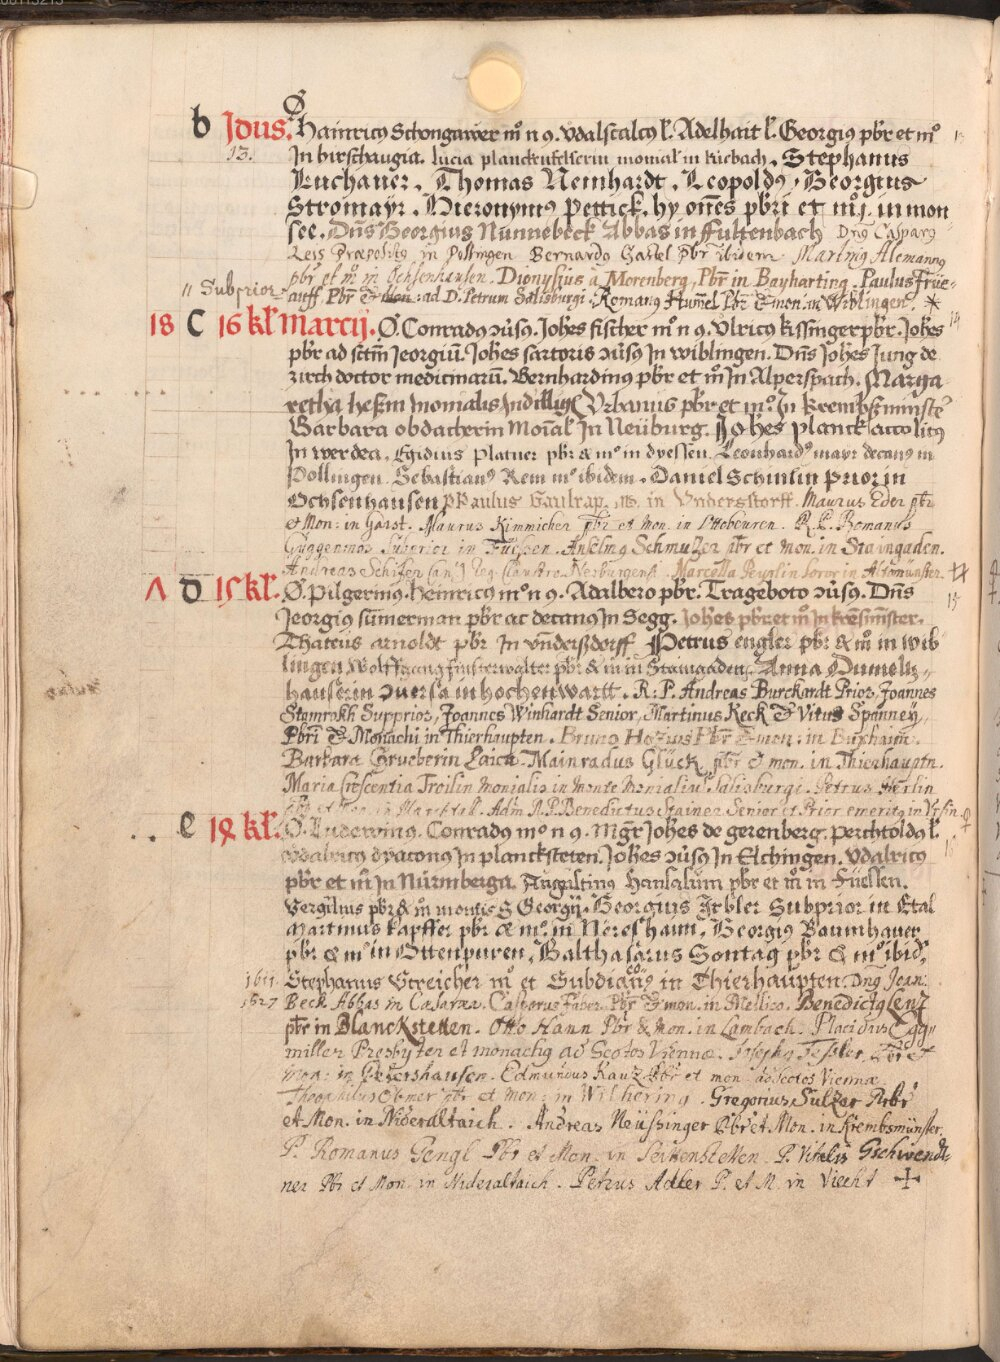 Ø
b Idus. Hainricus Schongawer m̊ n 9. Vdalscalcus l. Adelhait l. Georgi9 pbr et m̊
13. In hirschaugia. lucia planckenfelserin monial' in Kiebach. Stephanus
Luchauer. Thomas Neinhardt. Leopold9. Georgius
Stromayr. Hieronym9 Pettick. hy om̄es pbri et m̊ in mon
see. Dn̄s Georgius Nunnebeck Abbas in Fultenbach Dn9 Caspar9
Reis Praeposit9 in Pollingen Bernardo Gastel Pbr ibidem Martin9 Alemann9
pbr et m̊ in Ochsenhausen. Dionysius à Morenberg, Pbr in Bayharting. Paulus Früe-
" Subprior auff Pbr & Mon: ad D. Petrum Salisburgi. Roman9 Hum̄el Pbr & mon. in Wiblingen. *
18 C 16 kl' Marcij. Ø. Conrad9 9us9. Joh̄es fischer m̊ n 9. Vlric9 kissinger pbr. Joh̄es
pbr ad sctm̄ Jeorgiu̅. Joh̄es sartoris 9us9 In wiblingen. Dn̄s Joh̄es Jung de
zirch doctor medicinaru̅. Bernhardin9 pbr et m̊ In Alperspach. Marga
retha hessin monialis Vrbanus pbr et m̊. In krembsminste
Barbara obdacherin Moīal' In Neüburg. Joh̄es planck accolit9
In werdea. Egidius Platner pbr & m̊ in dyessen. Leonhard9 mayr decan9 in
Pollingen. Sebastian9 Rem m̊ ibidem. Daniel Schinlin prior in
Ochsenhausen P Paulus Gaulrap. in Vndersstorff. Maurus Eder pbr
et Mon: in Garst. Maurus Kimmicher pbr et mon. in Ottobeuren. R. P. Romanus
Guggenmos Subprior in Füessen. Anselm9 Schmuzer pbr et mon. in Staingaden.
Andreas Marcella Peyrlin soror in Altomünster.
Λ D 15 kl'. Ø. Pilgerim9. Heinric9 m̊ n 9. Adalbero pbr. Trageboto 9us9. Dn̄s
Jeorgi9 sumerman pbr ac decan9 In Segg. Joh̄es pbr et m̊ In kre̅sm̄nster.
Thateus arnoldt pbr In vnderßdorff Petrus engler pbr & m̊ in wib
lingen Wolffgang finsterwalter pbr & m̊ in Staingaden. Anna Dumeltz-
hauserin 9uersa in hochenwartt. R: P. Andreas Burckardt Prior, Joannes
Stamrokh Supprior, Joannes Winhardt Senior, Martinus Keck & Vitus Spanney,
Pbri & Monachi in Thierhaupten. Bruno Pbr & mon: in Buxhaim.
Barbara Grueberin Laica. Mainradus Glück pbr & mon. in Thierhauptn.
Maria Crescentia Troilin monialis in monte Monialiu̅ Salisburgi. Petrus Herlin
Pbr et mon in Marchtal. Adm. R. P. Benedictus Stainer Senior et Prior emerit9 in Vrsin
e 14 kl'. Ø. Ludewin9. Conrad9 m̊ n 9. Mgr̄ Joh̄es de gerenberg. Perchtold9 l.
vdalric9 dyacon9 In planckſteten. Joh̄es 9us9 In Elchingen. Vdalric9
pbr et m̊ In Nürmberga. Augustin9 Hansalum pbr et m̊ in Füessen.
Vergilius pbr & m̊ montis S Georgij. Georgius Irbler Subprior in Etal
Martinus kapffer pbr & m̊ in Neresham. Georgi9 Baumhauer
pbr & m̊ in Ottenpuren. Balthasarus Sontag pbr & m̊ ibid.
1611 Stephanus Streicher m̊ et Subdiacon9 in Thierhaupten. Dn9 Joan:
1627 Beck Abbas in Caesarea. Castorus Faber. Pbr & mon. in Mellico. Benedict9 Lenz
pbr in Blanckstetten. Otto Hann Pbr & Mon. in Lambach. Placidus Egg-
miller Presbyter et monach9 ad Scotos Viennae. Joseph9 Tessler, Pbr et
mon: in Petershausen. Edmundus Rauz Pbr et mon ad Scotos Viennae.
Theophilus Obmer pbr et mon: in Wilhering. Gregorius Sulzer Prbr
et Mon. in Nideraltaich. Andreas Neüssinger Pbr et Mon. in Krembsmünster.
P. Romanus Gengl Pbr et Mon. in Seittenstetten. P. Vitalis Gschwendt-
ner Pbr et Mon. in Nideraltaich. Petrus Adler P. et M. in Viecht +